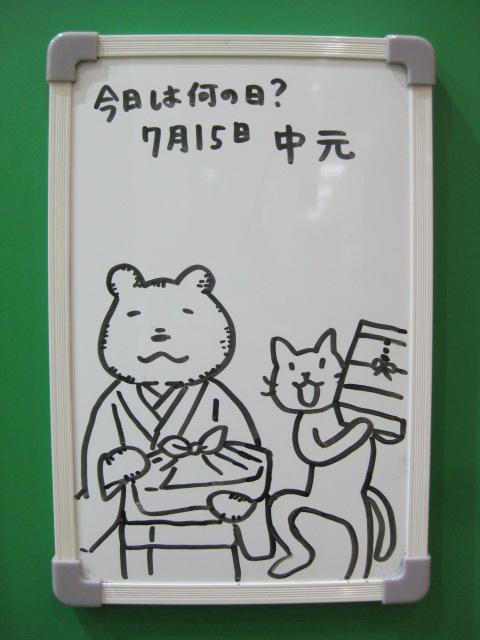 今日は何の日?
7月15日 中元